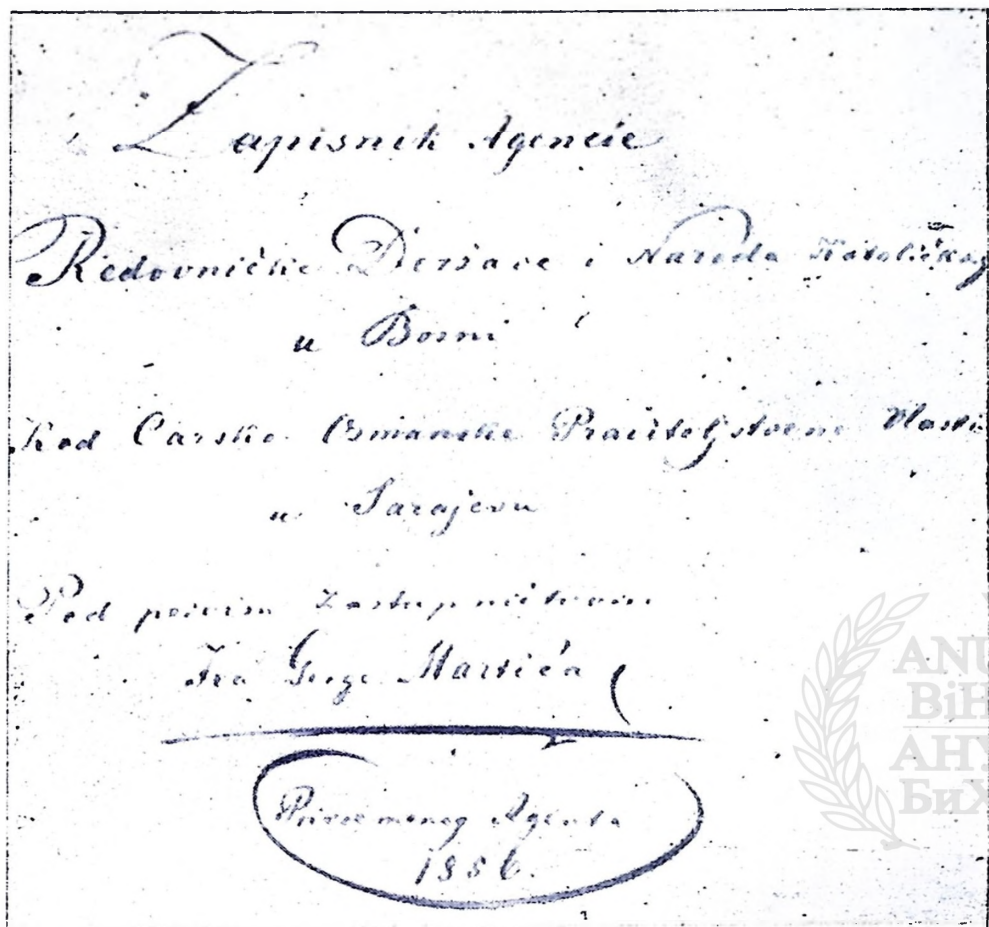 Zapisnik Agencie
Redovničke Deržave i Naroda Katoličkog
u Bosni
Kod Carsko Osmanske Praviteljstvene Vlasti
u Sarajevu
Pod pervim Zastupničtvom
Fra Gerge Martića
Privremenog Agenta
1856.
ANU
BiH
АНУ
БиХ